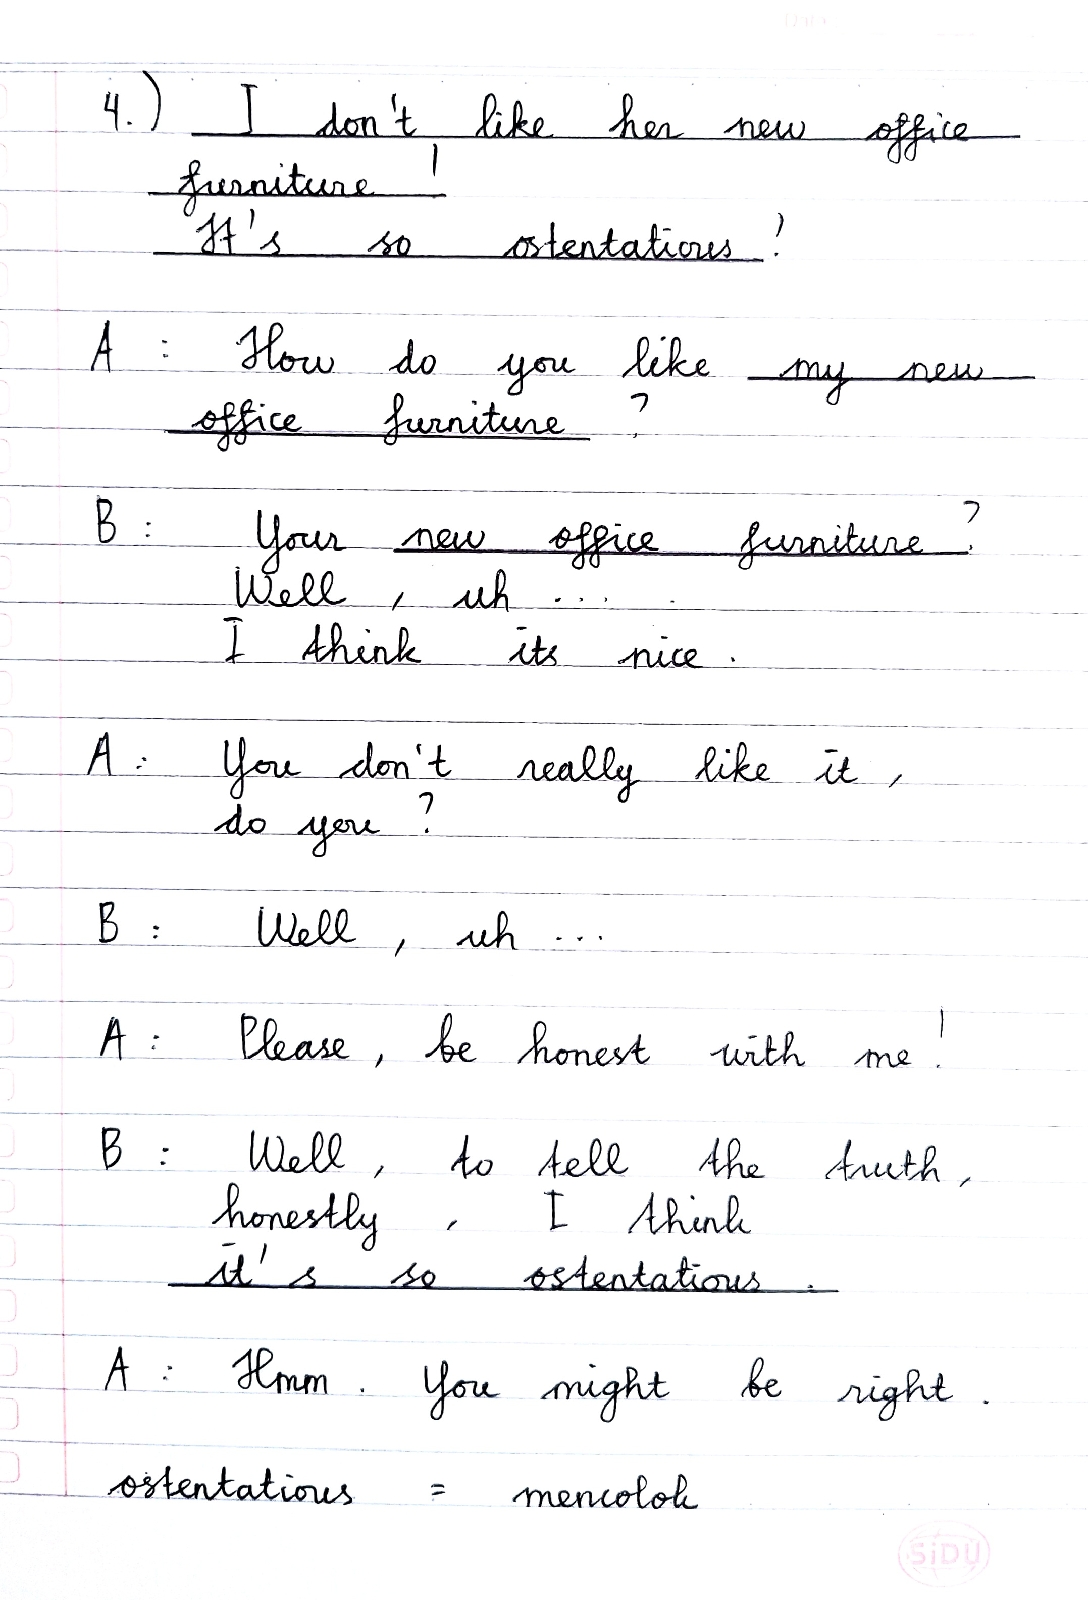 4.) I don't like her new office
furniture!
It's so ostentatious!
A : How do you like my new
office furniture ?
B : Your new office furniture?
Well , uh ...
I think its nice .
A : You don't really like it ,
do you ?
B : Well , uh ...
A : Please, be honest with me!
B : Well, to tell the truth,
honestly , I think
it's so ostentatious .
A : Hmm . You might be right .
ostentatious = mencolok
SiDU